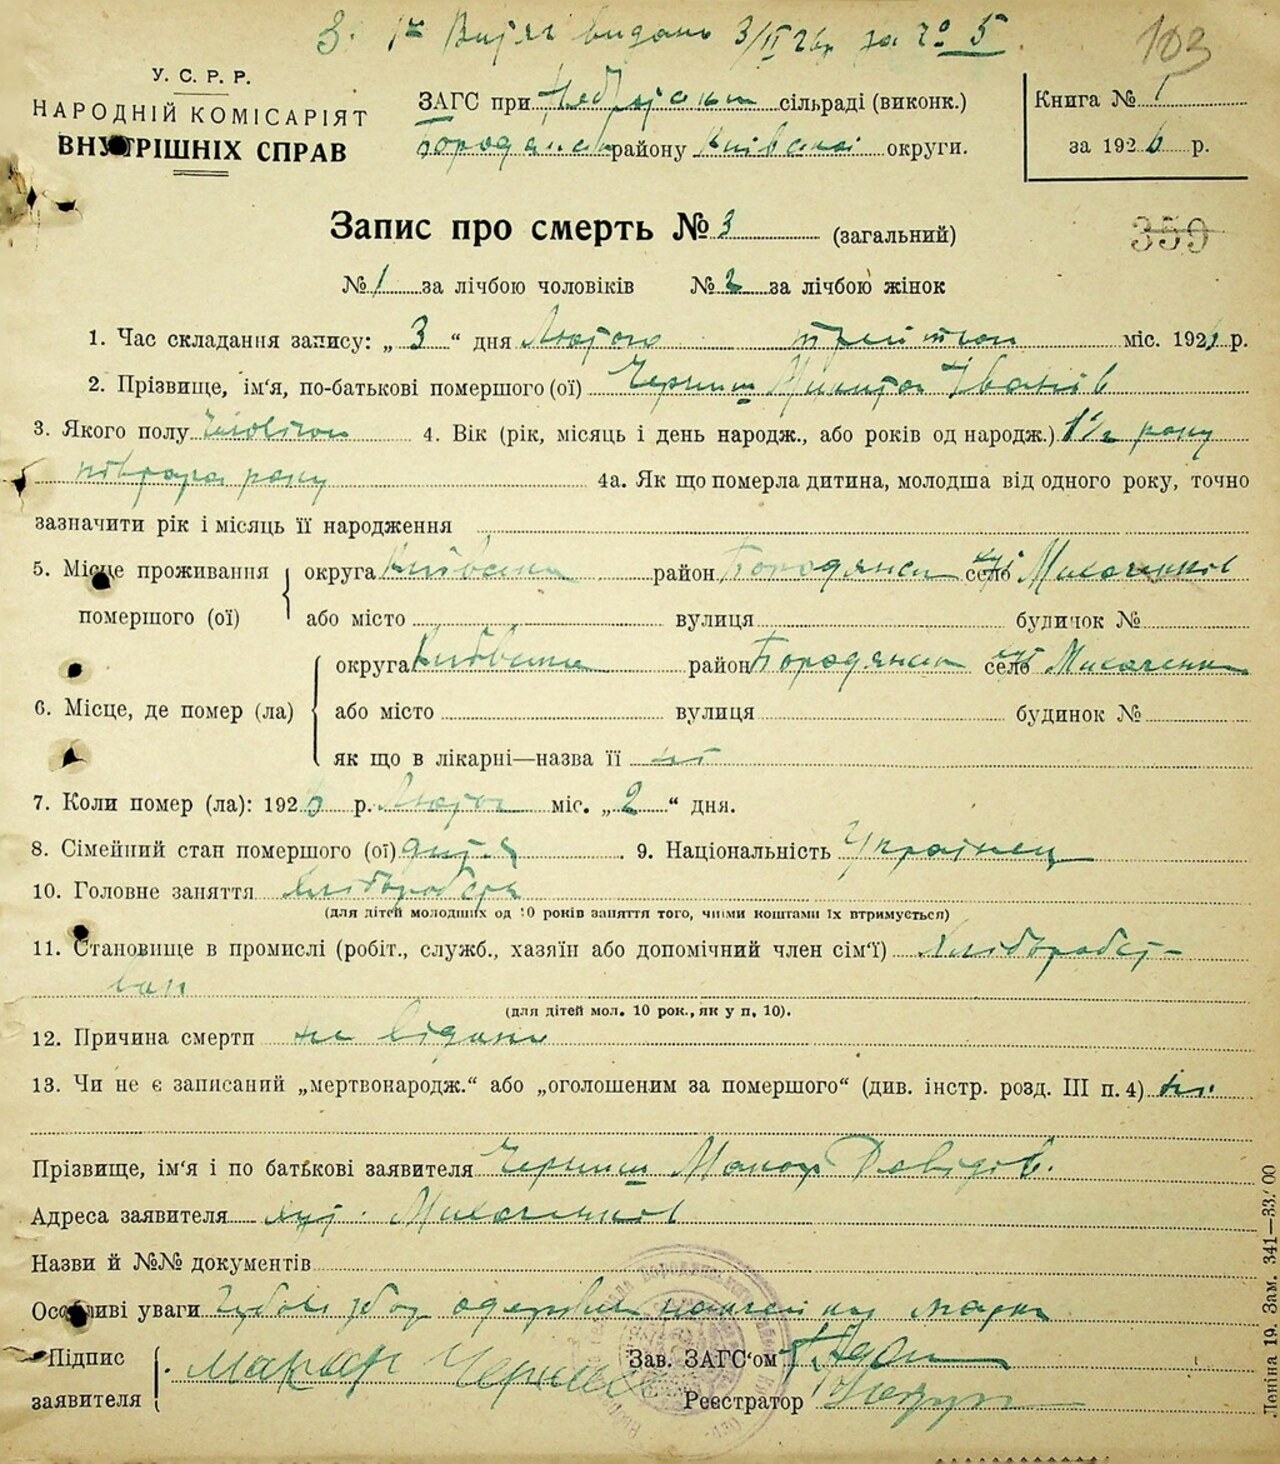 3. Витяг видано 3/II 26р за № 5
103
У. С. Р. Р.
НАРОДНІЙ КОМІСАРІЯТ
ВНУТРІШНІХ СПРАВ
ЗАГС при сільраді (виконк.)
Бородянськ району Київської округи.
Книга № 1
за 1926 р.
Запис про смерть № 3 (загальний)
359
№ 1 за лічбою чоловіків № 2 за лічбою жінок
1. Час складання запису: „ 3 “ дня Лютого міс. 192 р.
2. Прізвище, ім‘я, по-батькові помершого (ої) Черниш Іванів
3. Якого полу чоловічого 4. Вік (рік, місяць і день народж., або років од народж.) 1 1/2 року
півтора року 4а. Як що померла дитина, молодша від одного року, точно
зазначити рік і місяць її народження
5. Місце проживання помершого (ої) округа Київська район Бородянськ село хут Михаленків
або місто вулиця будинок №
6. Місце, де помер (ла) округа Київська район Бородянськ село хут Михаленки
або місто вулиця будинок №
як що в лікарні—назва її ні
7. Коли помер (ла): 1926 р. Лютого міс. „ 2 “ дня.
8. Сімейний стан помершого (ої) 9. Національність Українец
10. Головне заняття Хлібороб
(для дітей молодших од 10 років заняття того, чиїми коштами їх втримується)
11. Становище в промислі (робіт., служб., хазяїн або допомічний член сім‘ї)
(для дітей мол. 10 рок., як у п, 10).
12. Причина смерти не відомо
13. Чи не є записаний „мертвонародж.“ або „оголошеним за помершого“ (див. інстр. розд. III п. 4) ні.
Прізвище, ім‘я і по батькові заявителя Черниш Макар Давидів.
Адреса заявителя хут. Михаленків
Назви й №№ документів
Особливі уваги
Підпис заявителя Макар Черниш
Зав. ЗАГС‘ом
Реєстратор
Леніна 19. Зам. 341—33/00